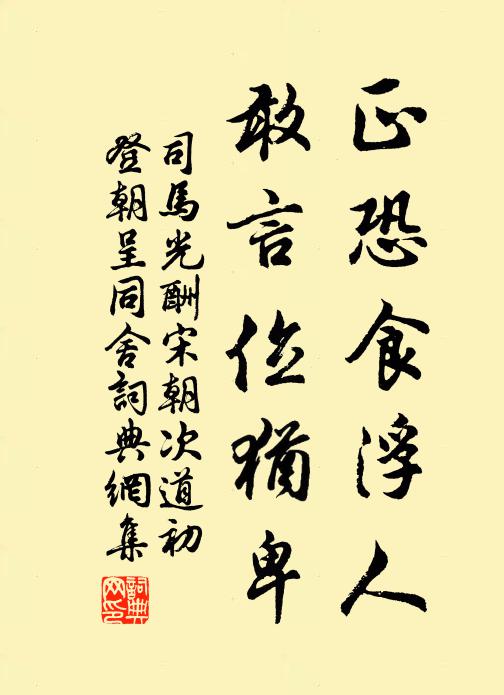 正恐食浮人
敢言位猶卑
司馬光酬宋朝次道初
登朝呈同舍詞典網集
詞典
网印